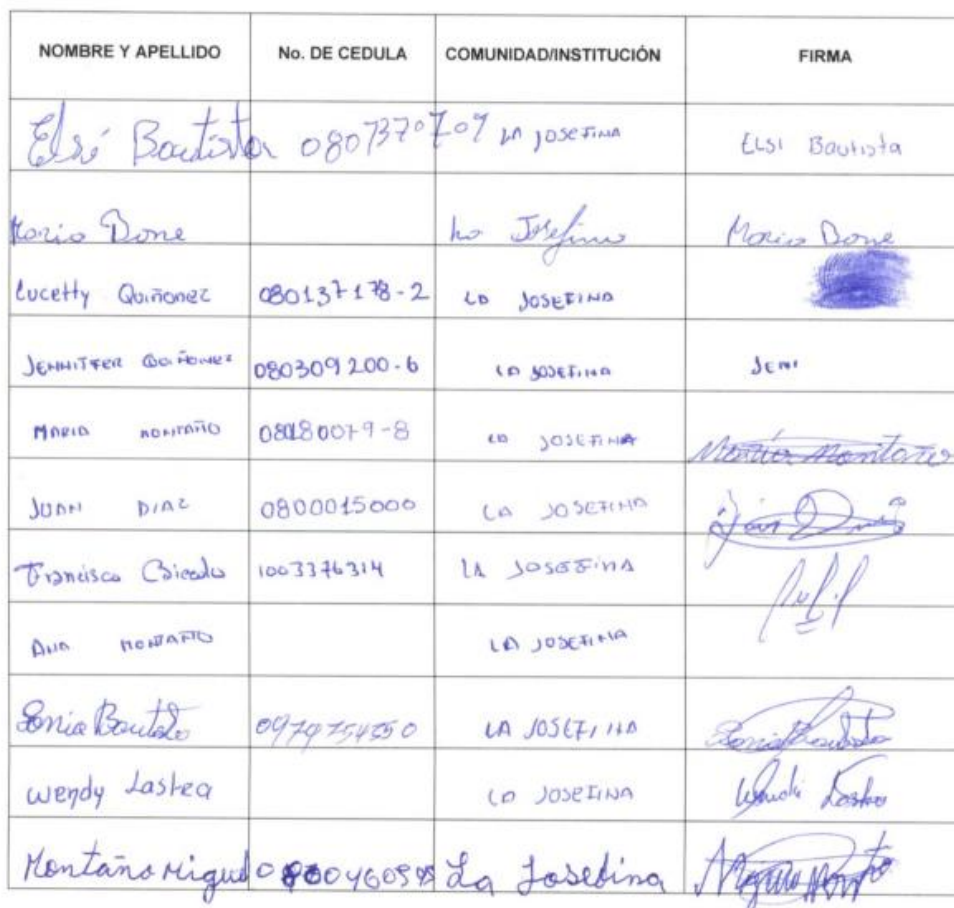 NOMBRE Y APELLIDO No. DE CEDULA COMUNIDAD/INSTITUCIÓN FIRMA
Elsi Bautista 0801370707 LA JOSEFINA ELSI Bautista
Mario Bone La Josefina Mario Bone
Lucetty Quiñonez 080137178-2 LA JOSEFINA
JENNITFER QUIÑONEZ 080309200-6 LA JOSEFINA JENI
MARIA MONTAÑO LA JOSEFINA Maria Montaño
JUAN DIAZ 0800015000 LA JOSEFINA
Francisco Caicedo 1003376314 LA JOSEFINA
ANA MONTAÑO LA JOSEFINA
Sonia Bautista LA JOSEFINA Sonia Bautista
Wendy Lastra LA JOSEFINA Wendi Lastra
Montaño Miguel La Josefina